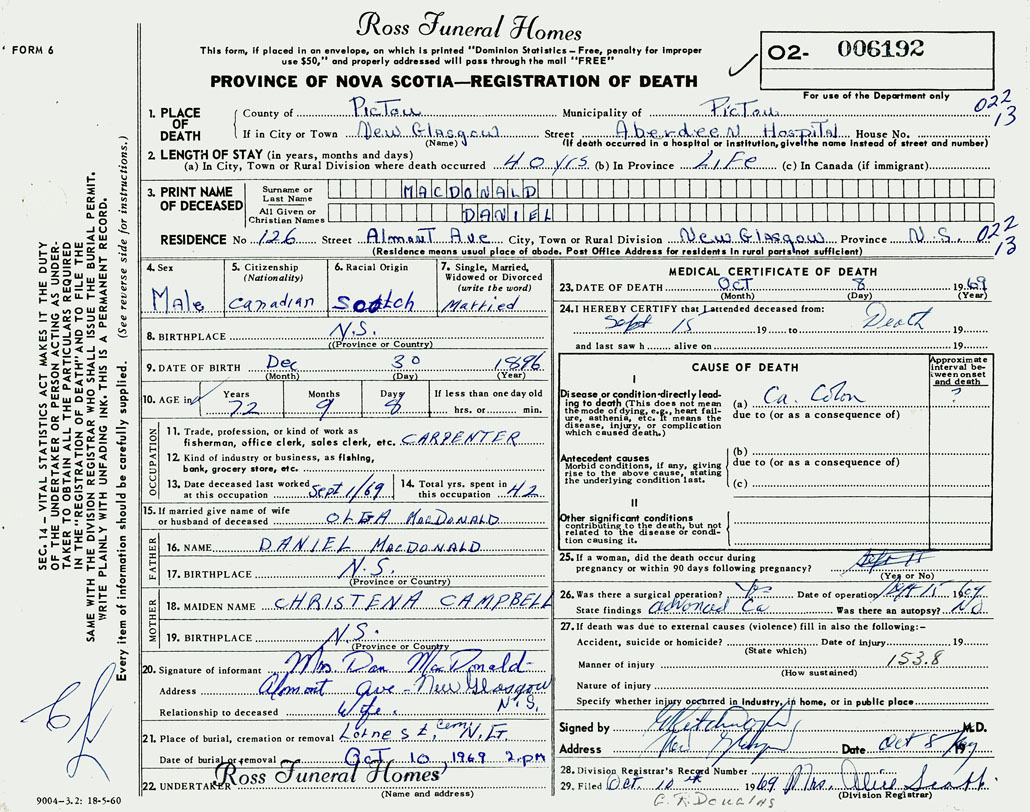 Ross Funeral Homes
FORM 6
This form, if placed in an envelope, on which is printed "Dominion Statistics – Free, penalty for improper
use $50," and properly addressed will pass through the mail "FREE"
PROVINCE OF NOVA SCOTIA—REGISTRATION OF DEATH
O2- 006192
For use of the Department only
022
13
1. PLACE OF DEATH
County of Pictou Municipality of Pictou
If in City or Town New Glasgow Street Aberdeen Hospital House No.
(Name) (If death occurred in a hospital or institution, give the name instead of street and number)
2. LENGTH OF STAY (in years, months and days)
(a) In City, Town or Rural Division where death occurred 40 yrs (b) In Province Life (c) In Canada (if immigrant)
3. PRINT NAME OF DECEASED
Surname or Last Name MACDONALD
All Given or Christian Names DANIEL
RESIDENCE No 126 Street Almont Ave City, Town or Rural Division New Glasgow Province N.S.
022
13
(Residence means usual place of abode. Post Office Address for residents in rural parts not sufficient)
4. Sex
Male
5. Citizenship
(Nationality)
Canadian
6. Racial Origin
Scotch
7. Single, Married,
Widowed or Divorced
(write the word)
Married
8. BIRTHPLACE N.S.
(Province or Country)
9. DATE OF BIRTH Dec 30 1896
(Month) (Day) (Year)
10. AGE in Years Months Days If less than one day old
72 9 8 hrs. or min.
OCCUPATION
11. Trade, profession, or kind of work as
fisherman, office clerk, sales clerk, etc. CARPENTER
12. Kind of industry or business, as fishing,
bank, grocery store, etc.
13. Date deceased last worked
at this occupation Sept 1/69
14. Total yrs. spent in
this occupation 42
15. If married give name of wife
or husband of deceased OLGA MACDONALD
FATHER
16. NAME DANIEL MACDONALD
17. BIRTHPLACE N.S.
(Province or Country)
MOTHER
18. MAIDEN NAME CHRISTENA CAMPBELL
19. BIRTHPLACE N.S.
(Province or Country
20. Signature of informant Mrs Dan MacDonald
Address Almont Ave - New Glasgow
N.S.
Relationship to deceased Wife.
21. Place of burial, cremation or removal Lorne St, Cem. N.G.
Date of burial or removal OCT 10, 1969 2 pm
Ross Funeral Homes
22. UNDERTAKER
(Name and address)
9004-3.2: 18-5-60
MEDICAL CERTIFICATE OF DEATH
23. DATE OF DEATH Oct 8 1969
(Month) (Day) (Year)
24. I HEREBY CERTIFY that I attended deceased from:
Sept 15 19 to Death 19
and last saw h alive on 19
CAUSE OF DEATH
Approximate interval between onset and death
I
Disease or condition directly leading to death (This does not mean the mode of dying, e.g., heart failure, asthenia, etc. It means the disease, injury, or complication which caused death.)
(a) Ca. Colon ?
due to (or as a consequence of)
Antecedent causes
Morbid conditions, if any, giving rise to the above cause, stating the underlying condition last.
(b)
due to (or as a consequence of)
(c)
II
Other significant conditions
contributing to the death, but not related to the disease or condition causing it.
25. If a woman, did the death occur during
pregnancy or within 90 days following pregnancy?
(Yes or No)
26. Was there a surgical operation? Yes Date of operation Sept 15 1969
State findings advanced Ca Was there an autopsy? No
27. If death was due to external causes (violence) fill in also the following:–
Accident, suicide or homicide? Date of injury 19
(State which)
Manner of injury 153.8
(How sustained)
Nature of injury
Specify whether injury occurred in industry, in home, or in public place
Signed by M.D.
Address New Glasgow Date Oct 8 1969
28. Division Registrar's Record Number
29. Filed Oct. 10th 1969 Mrs. Alice Scott
(Division Registrar)
G. R. Douglas
SEC. 14 – VITAL STATISTICS ACT MAKES IT THE DUTY
OF THE UNDERTAKER OR PERSON ACTING AS UNDER-
TAKER TO OBTAIN ALL THE PARTICULARS REQUIRED
IN THE "REGISTRATION OF DEATH" AND TO FILE THE
SAME WITH THE DIVISION REGISTRAR WHO SHALL ISSUE THE BURIAL PERMIT.
WRITE PLAINLY WITH UNFADING INK. THIS IS A PERMANENT RECORD.
Every item of information should be carefully supplied. (See reverse side for instructions.)